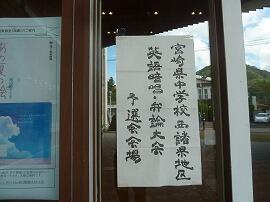 宮崎県中学校西諸県地区
英語暗唱・弁論大会
予選会会場